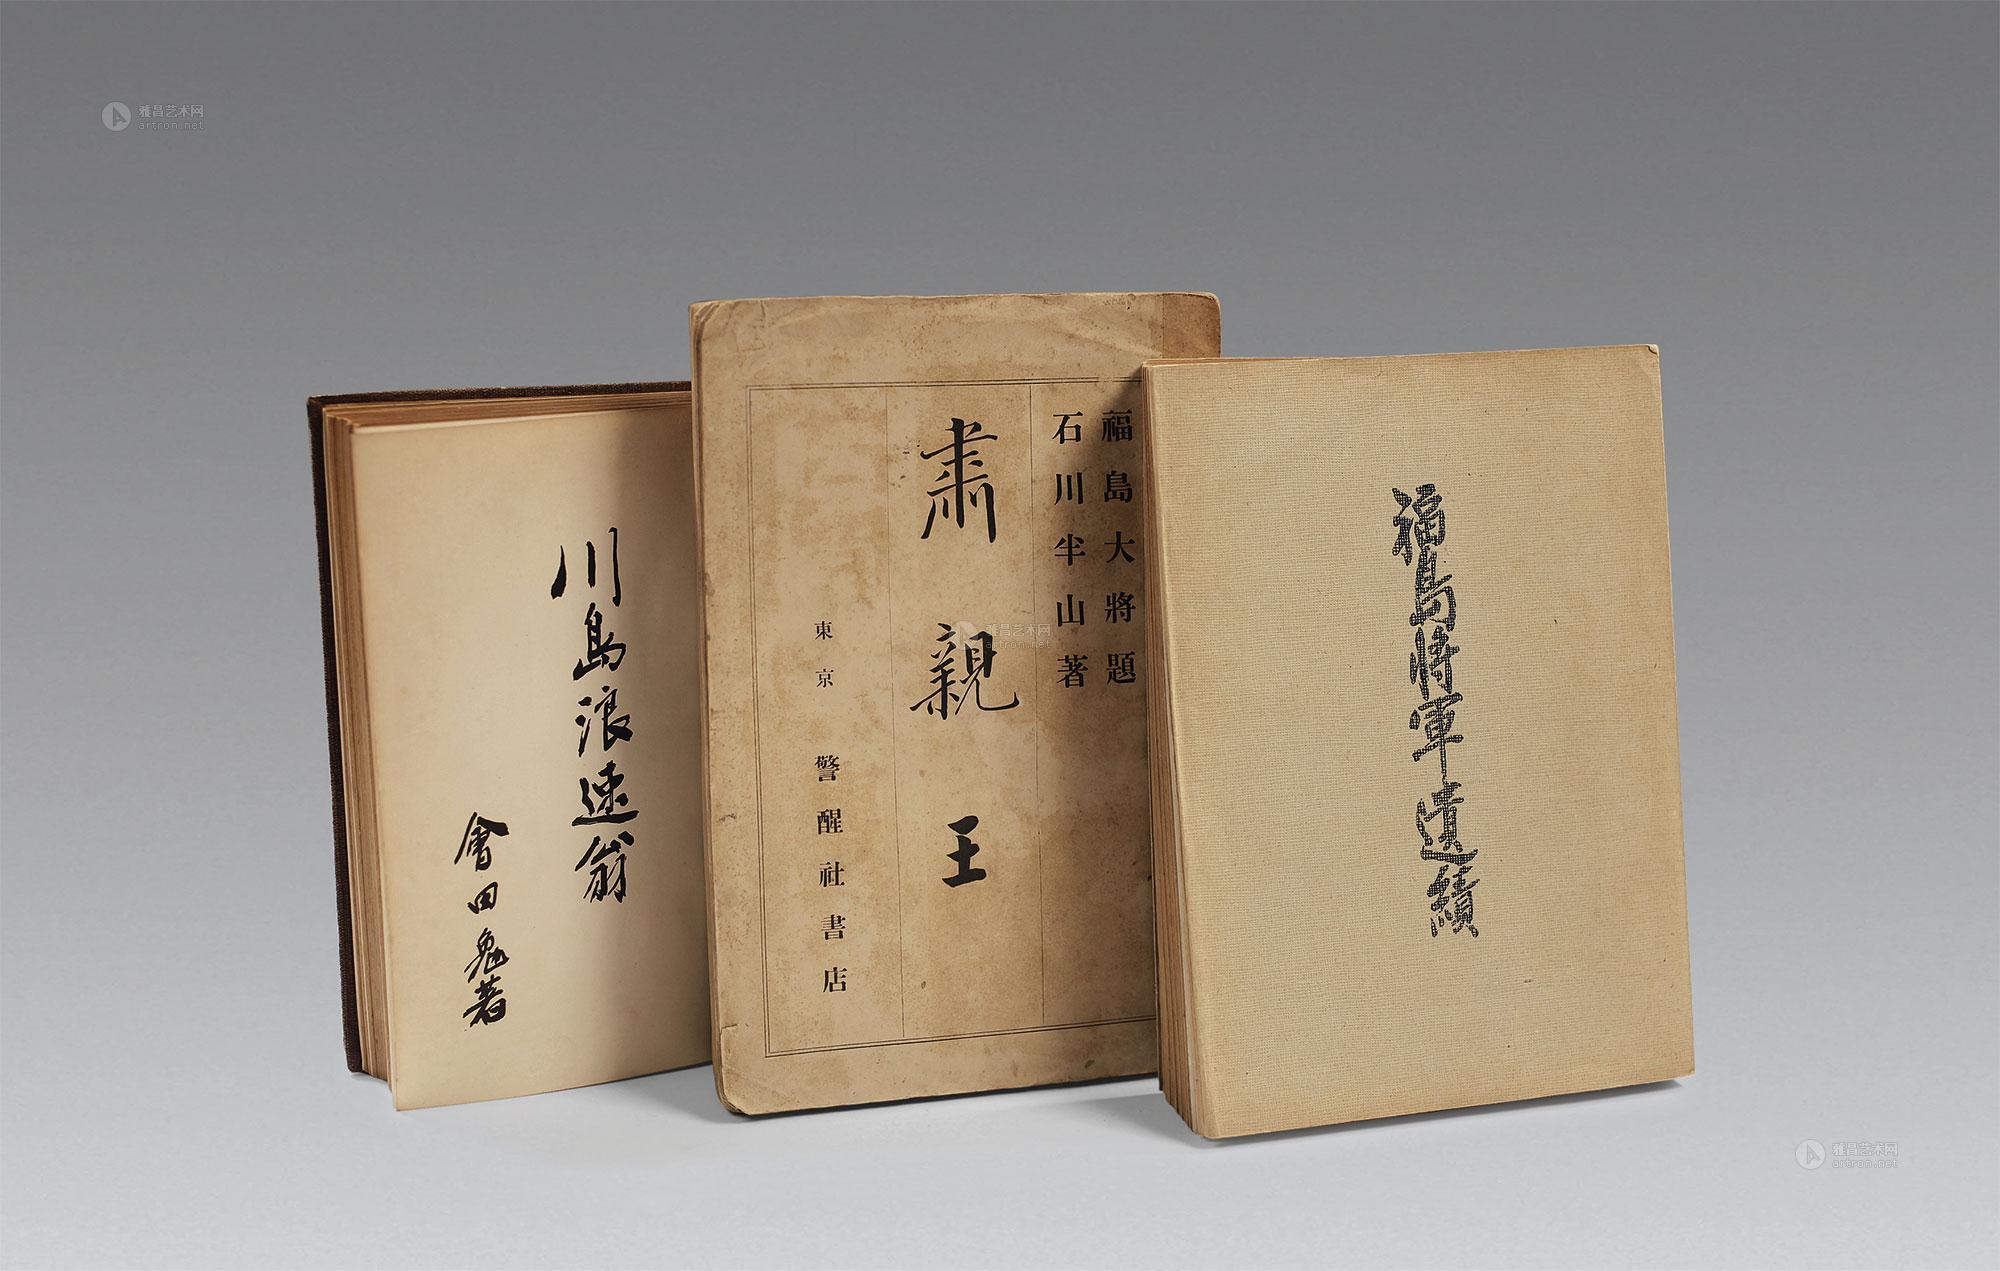 雅昌艺术网
artron.net
川島浪速翁
會田勉著
福島大將題
石川半山著
肅親王
東京 警醒社書店
雅昌艺术网
artron.net
福島將軍遺績
雅昌艺术网
artron.net